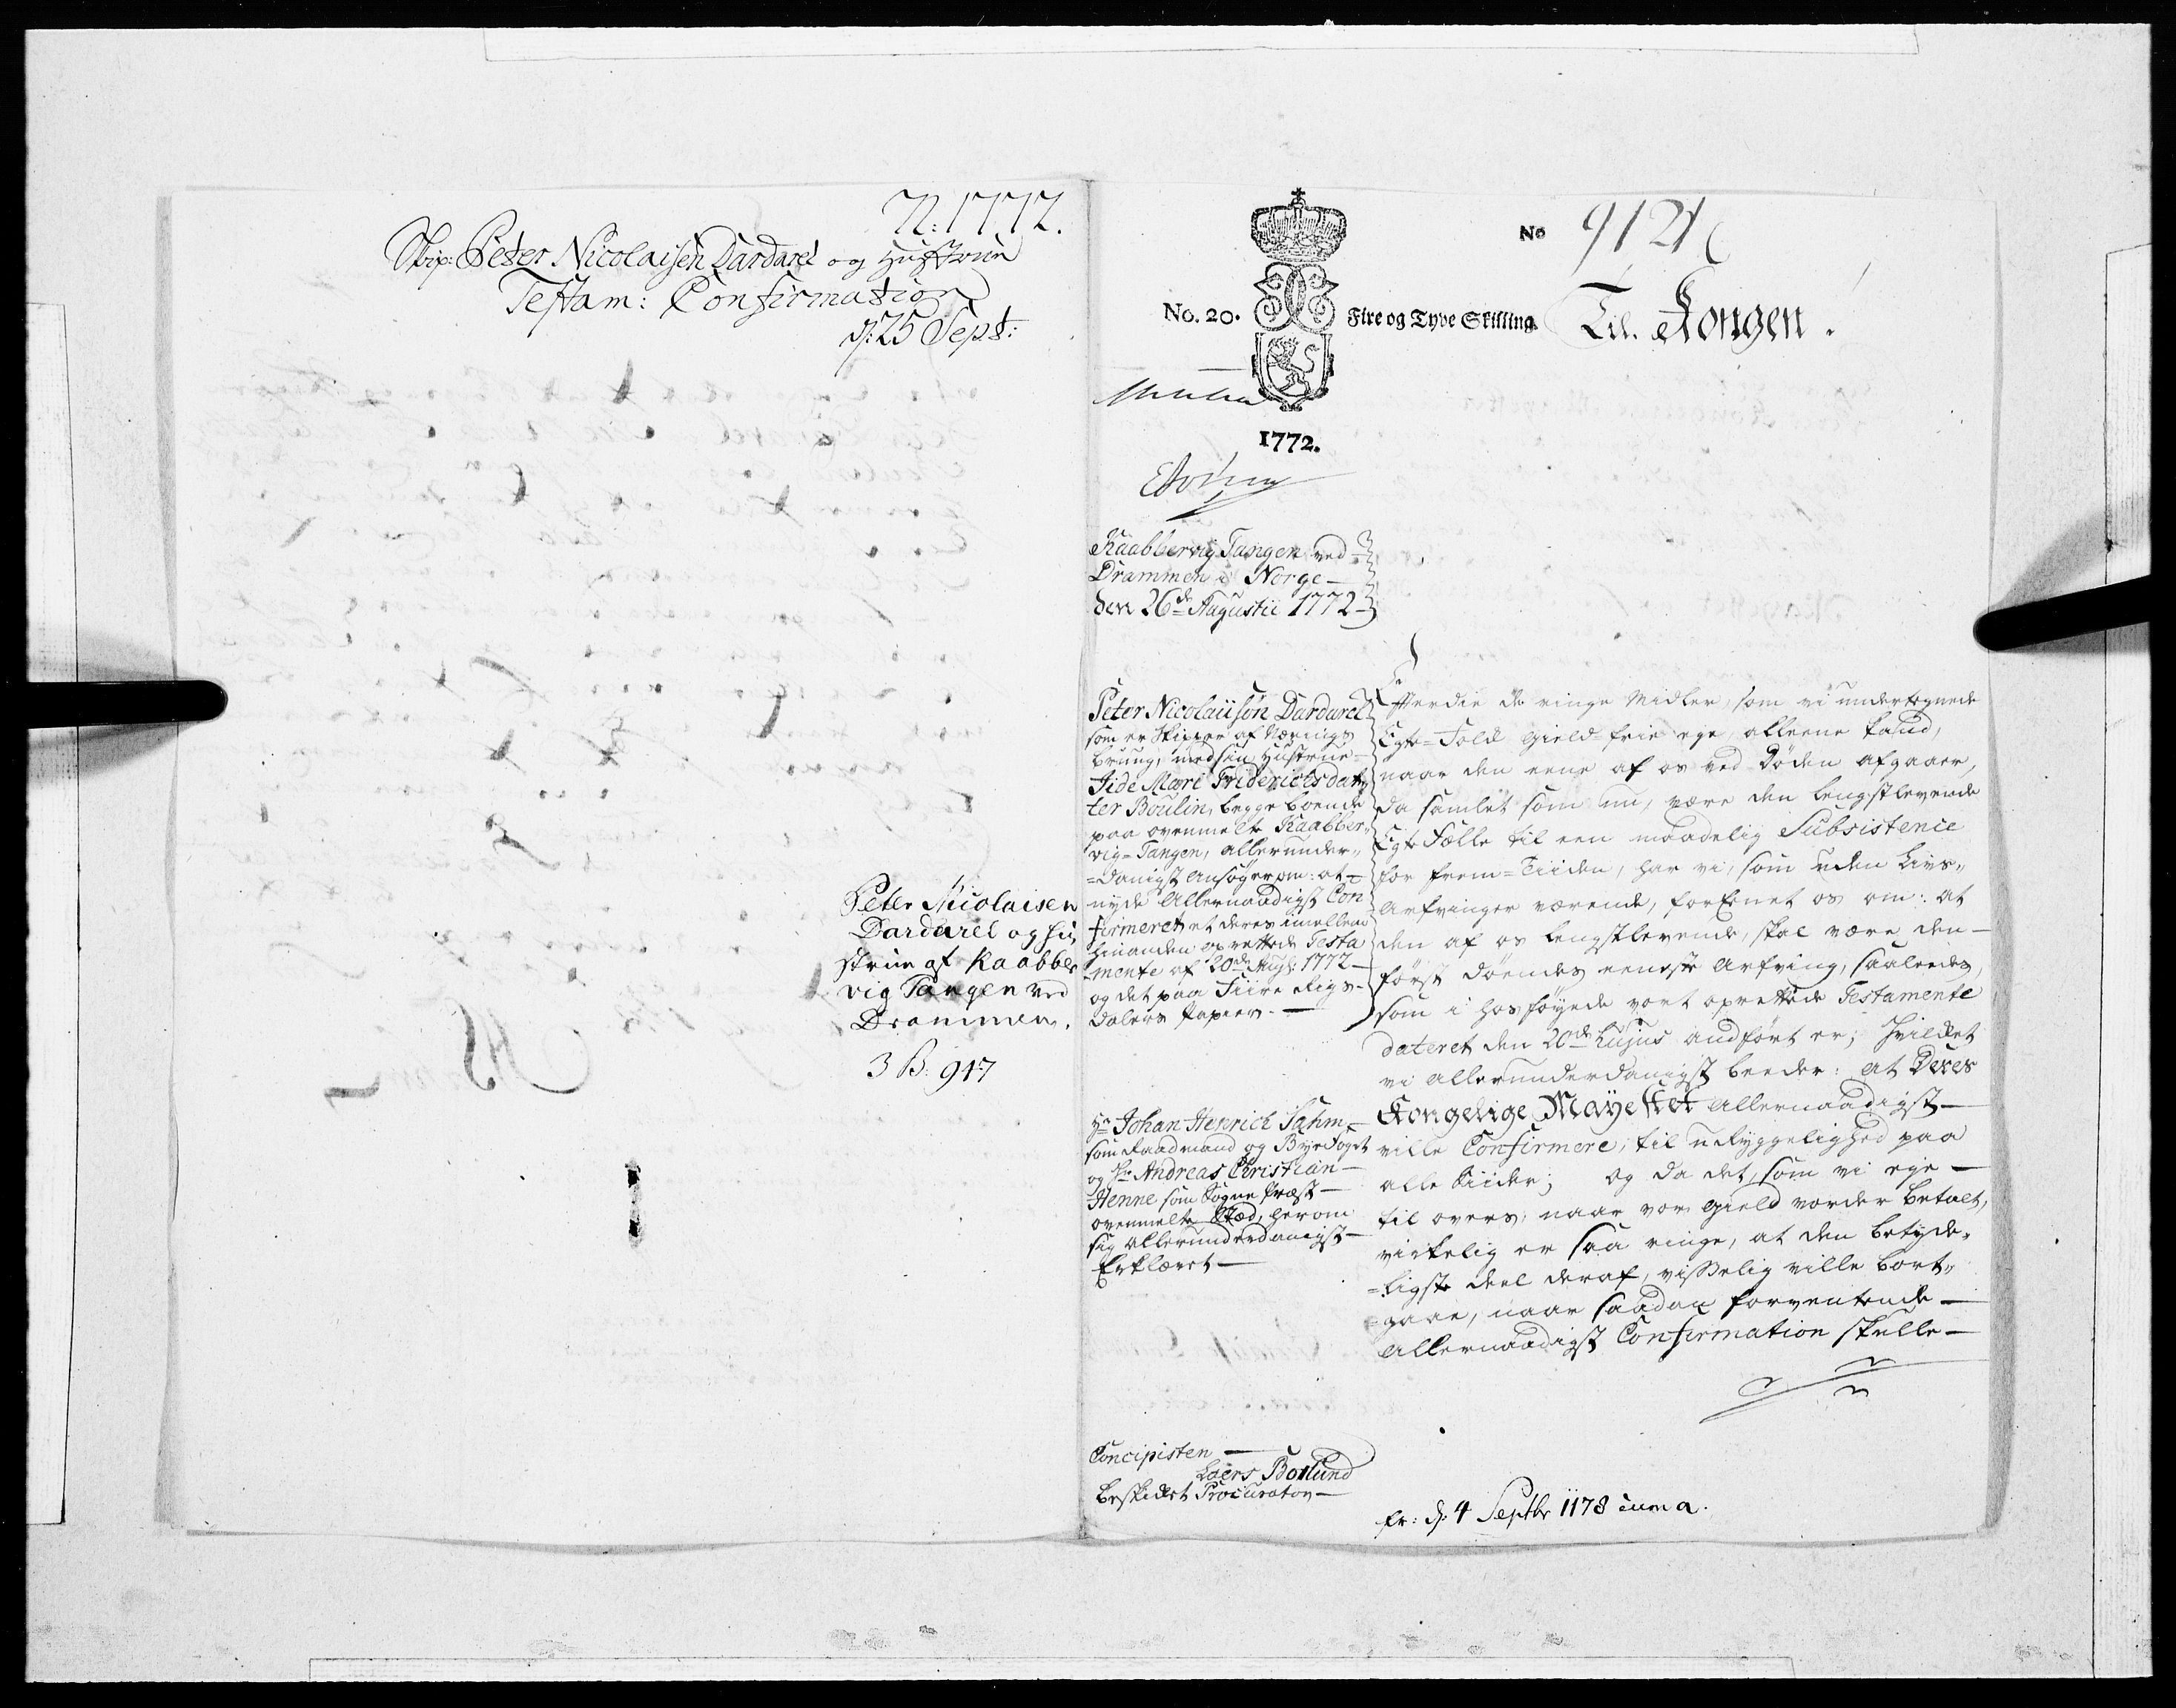 N: 1772.
Skip: Peter Nicolaisen Dardarel og Hustrue
Testam: Confirmation
d: 25 Sept:
Peter Nicolaisen
Dardarel og hu
strue af Kaabber
vig Tangen ved
Drammen.
3 B: 947
No. 20.
Fire og Tyve Skilling.
1772.
No
Til Kongen.
Kaabbervig Tangen ved
Drammen i Norge
den 26de Augustii 1772
Peter Nicolaiisøn Dardarel
som er Skipper af Nærings
brug, med sin Hustrue
Fridericksdat
ter Boulin, begge boende
paa ovenmelte Kaabber„
vig=Tangen, allerunder„
=danigst Ansøger om: at
nyde Allernaadigst Con
firmeret et deres imellem
hinanden oprettede Testa
mente af 20de Aug: 1772
og det paa Fiire Rigs
dalers Papier.
Hr Johan Henrich Sahm
som Raadmand og Bye Foget
og Hr Andreas Christian
Henne som Sogne Præst
ovenmelte Stæd, herom
sig allerunderdanigst
Erklæret
Concipisten
Laers Borlund
beskicket Procurator
Efferdie de ringe Midler, som vi undertegnede
Egte=Folk Gield=frie eye,
naar den eene af os ved Døden afgaaer,
da samlet som nu, være den Lengstlevende
Egte Fælle til een maadelig Subsistence
for Frem=Tiiden, har vi, som uden Livs„
Arfvinger værende, foreenet os om: at
den af os Lengstlevende, skal være den
først Døendes eeneste Arfving, saaledes,
som i hosføyede vort oprettede Testamente
dateret den 20de hujus andført er; Hvilket
vi allerunderdanigst beeder: at Deres
Kongelige Mayestet Allernaadigst
ville Confirmere, til uryggelighed paa
alle Tiider; og da det, som vi eye
til overs, naar vor Gield vorder betalt,
virkelig er saa ringe, at den betyde„
=ligste deel deraf, visselig ville bort„
=gaae, naar saadan forventende
Allernaadigst Confirmation skulle
fr: d. 4 Septbr 1178